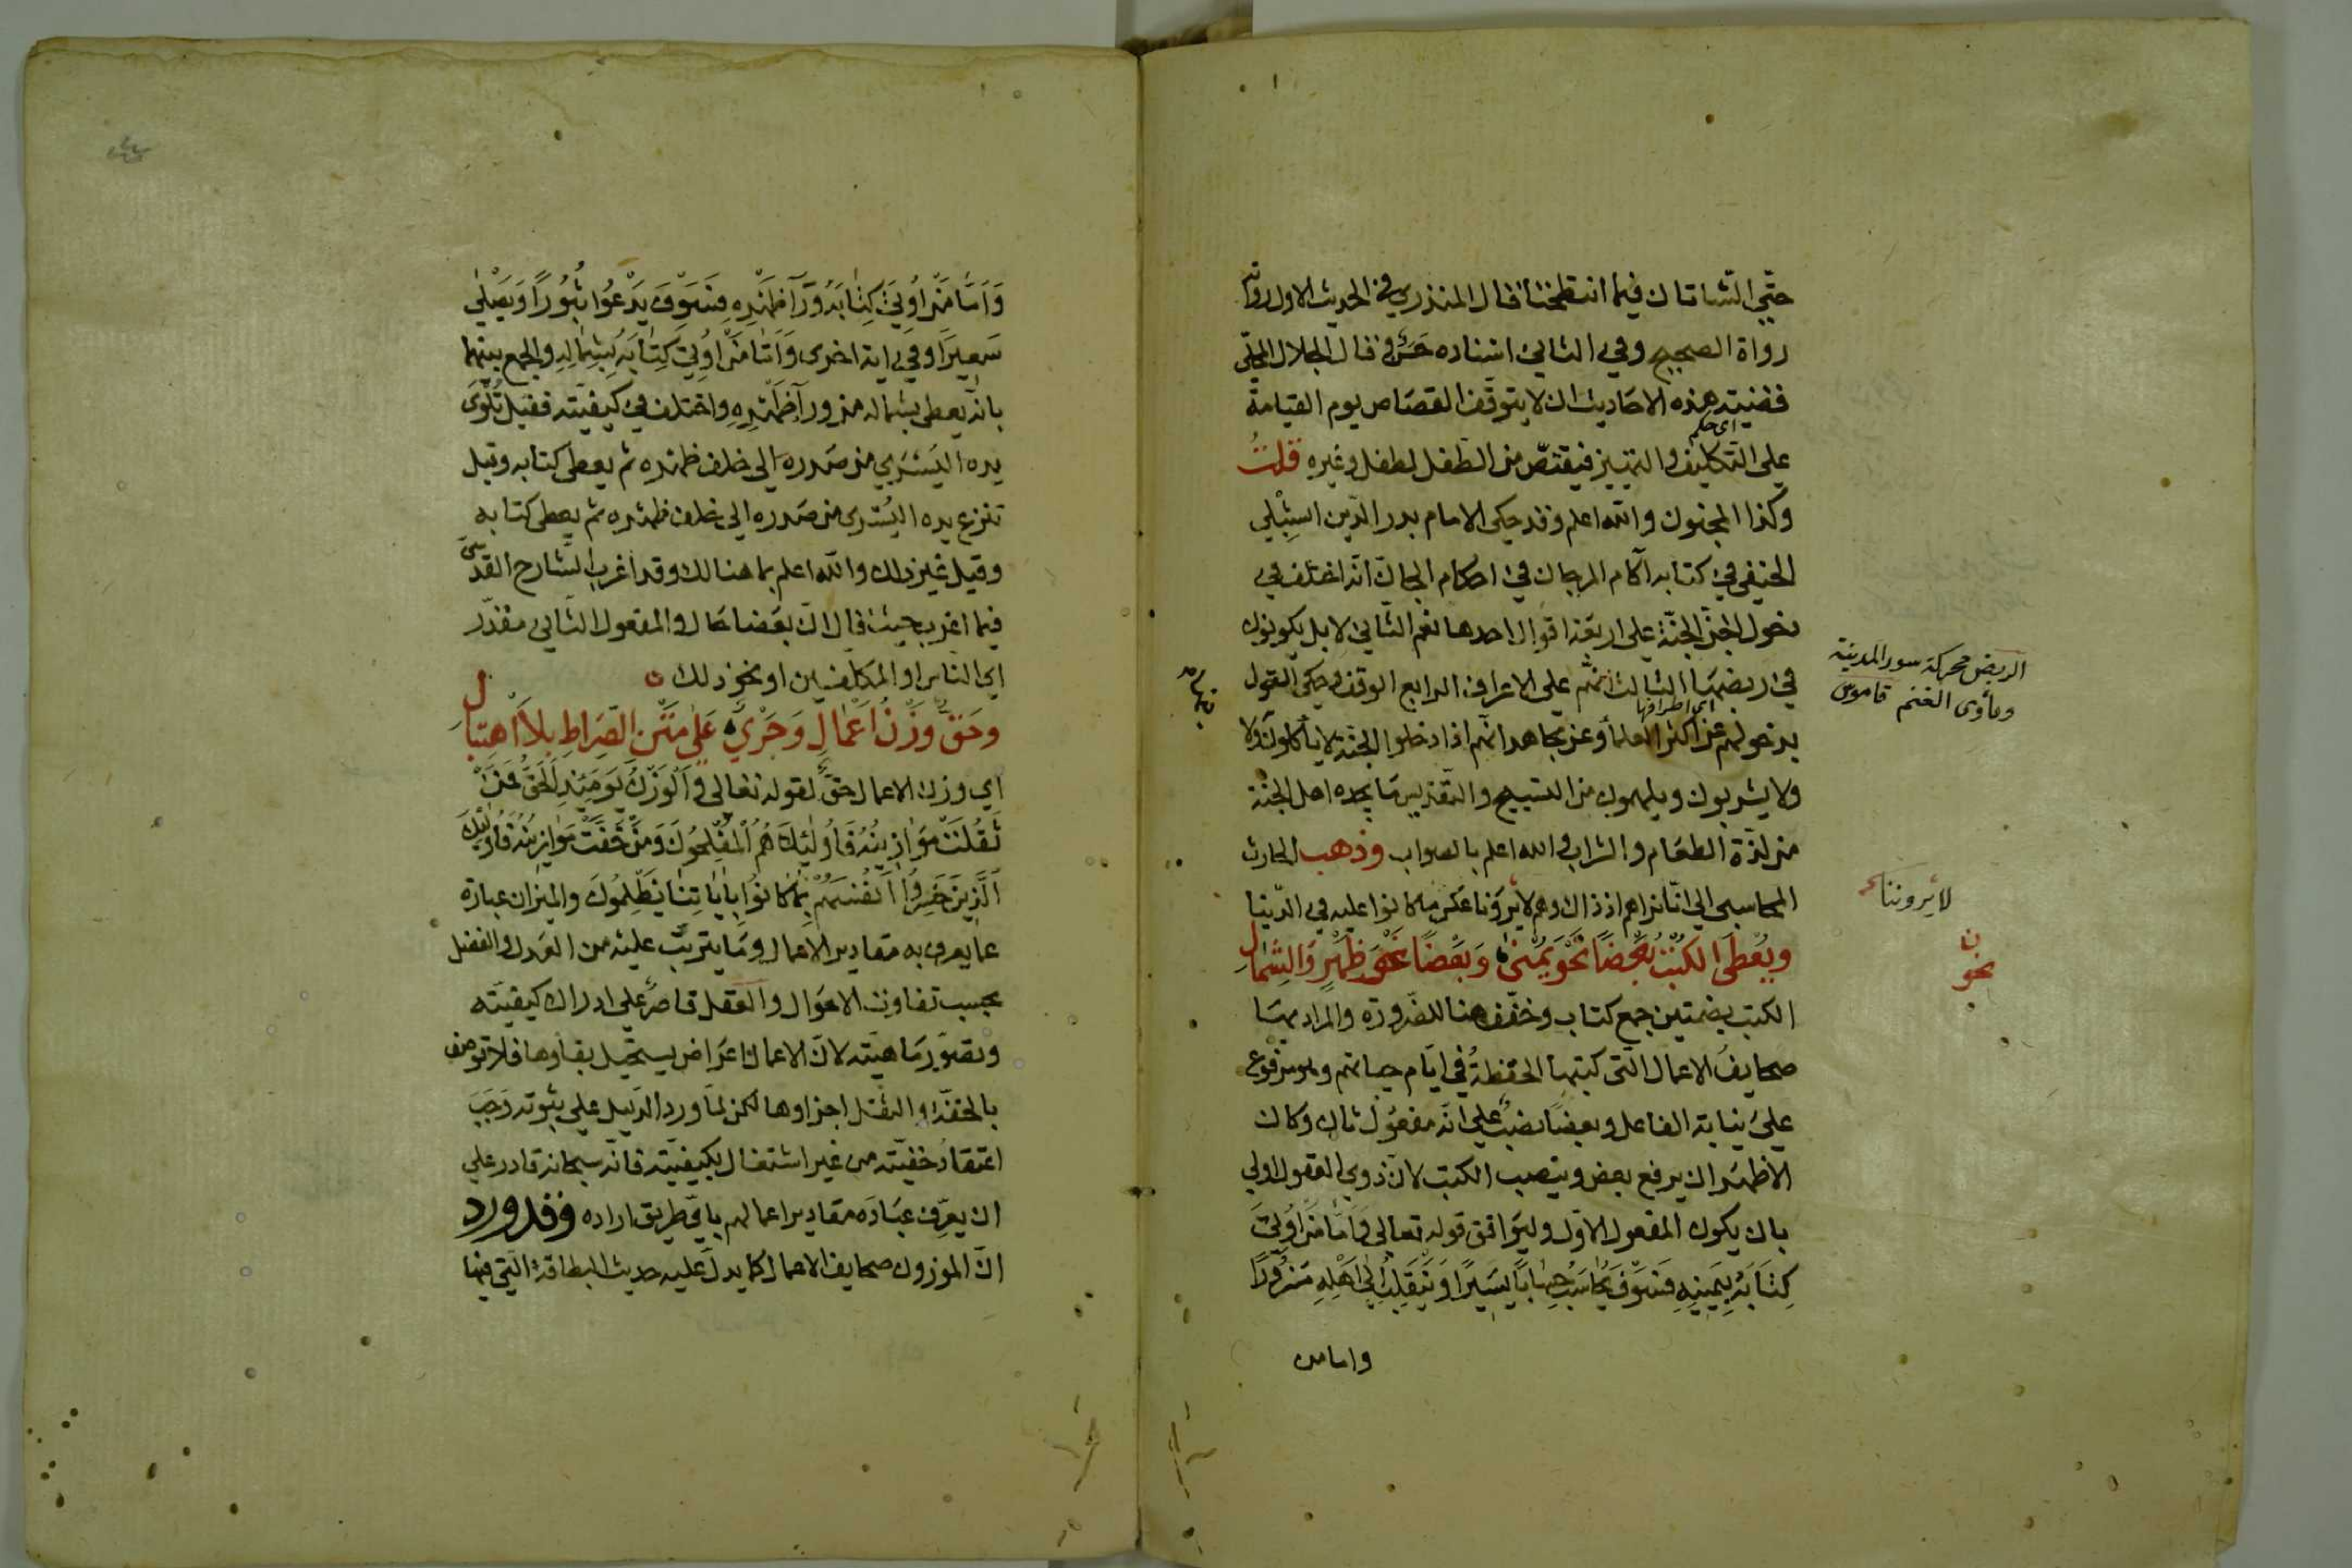 حتى الشاتان فيما انتطحتا قال المنذري في الحديث الاول رواته
رواة الصحيح وفي الثاني اسناده حسن قال الجلال المحلي
فقضية هذه الاحاديث ان لا يتوقف القصاص يوم القيامة
اي حكم
على التكليف والتمييز فيقتص من الطفل لطفل وغيره قلت
وكذا المجنون والله اعلم وقد حكى الامام بدر الدين الشبلي
الحنفي في كتابه آكام المرجان في احكام الجان انه اختلف في
دخول الجن الجنة على اربعة اقوال احدها نعم الثاني لا بل يكونون
في ربضها الثالث انهم على الاعراف الرابع الوقف وحكى القول
اي اطرافها
بدخولهم عن اكثر العلماء وعن مجاهد انهم اذا دخلوا الجنة لا يأكلون ولا
ولا يشربون ويلهمون من التسبيح والتقديس ما يجده اهل الجنة
من لذة الطعام والشراب والله اعلم بالصواب وذهب الحارث
المحاسبي الى انا نراهم اذ ذاك وهم لا يرونا عكس ما كانوا عليه في الدنيا
ويُعْطَى الكُتْبُ بَعْضًا نَحْوَ يُمْنَى وَبَعْضًا نَحْوَ ظَهْرٍ وَالشِّمَالِ
الكتب بضمتين جمع كتاب وخفف هنا للضرورة والمراد بها
صحايف الاعمال التي كتبها الحفظة في ايام حياتهم وهو مرفوع
على نيابة الفاعل وبعضا نصب على انه مفعول ثان وكان
الاظهر ان يرفع بعض وينصب الكتب لان ذوي العقول اولى
بان يكون المفعول الاول وليوافق قوله تعالى فَأَمَّا مَنْ أُوتِيَ
كِتَابَهُ بِيَمِينِهِ فَسَوْفَ يُحَاسَبُ حِسَابًا يَسِيرًا وَيَنْقَلِبُ إِلَى أَهْلِهِ مَسْرُورًا
واما من
الربض محركة سور المدينة
ومأوى الغنم قاموس
لا يروننا
ن
نحو
وَأَمَّا مَنْ أُوتِيَ كِتَابَهُ وَرَآءَ ظَهْرِهِ فَسَوْفَ يَدْعُوا ثُبُورًا وَيَصْلَى
سَعِيرًا وفي اية اخرى وَأَمَّا مَنْ أُوتِيَ كِتَابَهُ بِشِمَالِهِ والجمع بينهما
بانه يعطى بشماله من ورآء ظهره واختلف في كيفيته فقيل تلوى
يده اليسرى من صدره الى خلف ظهره ثم يعطى كتابه وقيل
تنزع يده اليسرى من صدره الى خلف ظهره ثم يعطى كتابه
وقيل غير ذلك والله اعلم بما هنالك وقد اغرب الشارح القدسي
فيما اغرب حيث قال ان بعضا حال والمفعول الثاني مقدر
اي الناس او المكلفين او نحو ذلك
وحَقٌّ وَزْنُ أَعْمَالٍ وَجَرْيٌ عَلَى مَتْنِ الصِّرَاطِ بِلَا اهْتِبَالِ
اي وزن الاعمال حق لقوله تعالى وَالْوَزْنُ يَوْمَئِذٍ الْحَقُّ فَمَنْ
ثَقُلَتْ مَوَازِينُهُ فَأُولَئِكَ هُمُ الْمُفْلِحُونَ وَمَنْ خَفَّتْ مَوَازِينُهُ فَأُولَئِكَ
الَّذِينَ خَسِرُوا أَنْفُسَهُمْ بِمَا كَانُوا بِآيَاتِنَا يَظْلِمُونَ والميزان عبارة
عما يعرف به مقادير الاعمال وما يترتب عليه من العدل والفضل
بحسب تفاوت الاحوال والعقل قاصر على ادراك كيفيته
وتصور ماهيته لان الاعمال اعراض يستحيل بقاؤها فلا توصف
بالخفة او الثقل اجزاوها لكن لما ورد الدليل على ثبوته وجب
اعتقاد حقيته من غير اشتغال بكيفيته فانه سبحانه قادر على
ان يعرف عباده مقادير اعمالهم باي طريق اراده وقد ورد
ان الموزون صحايف الاعمال كما يدل عليه حديث البطاقة التي فيها